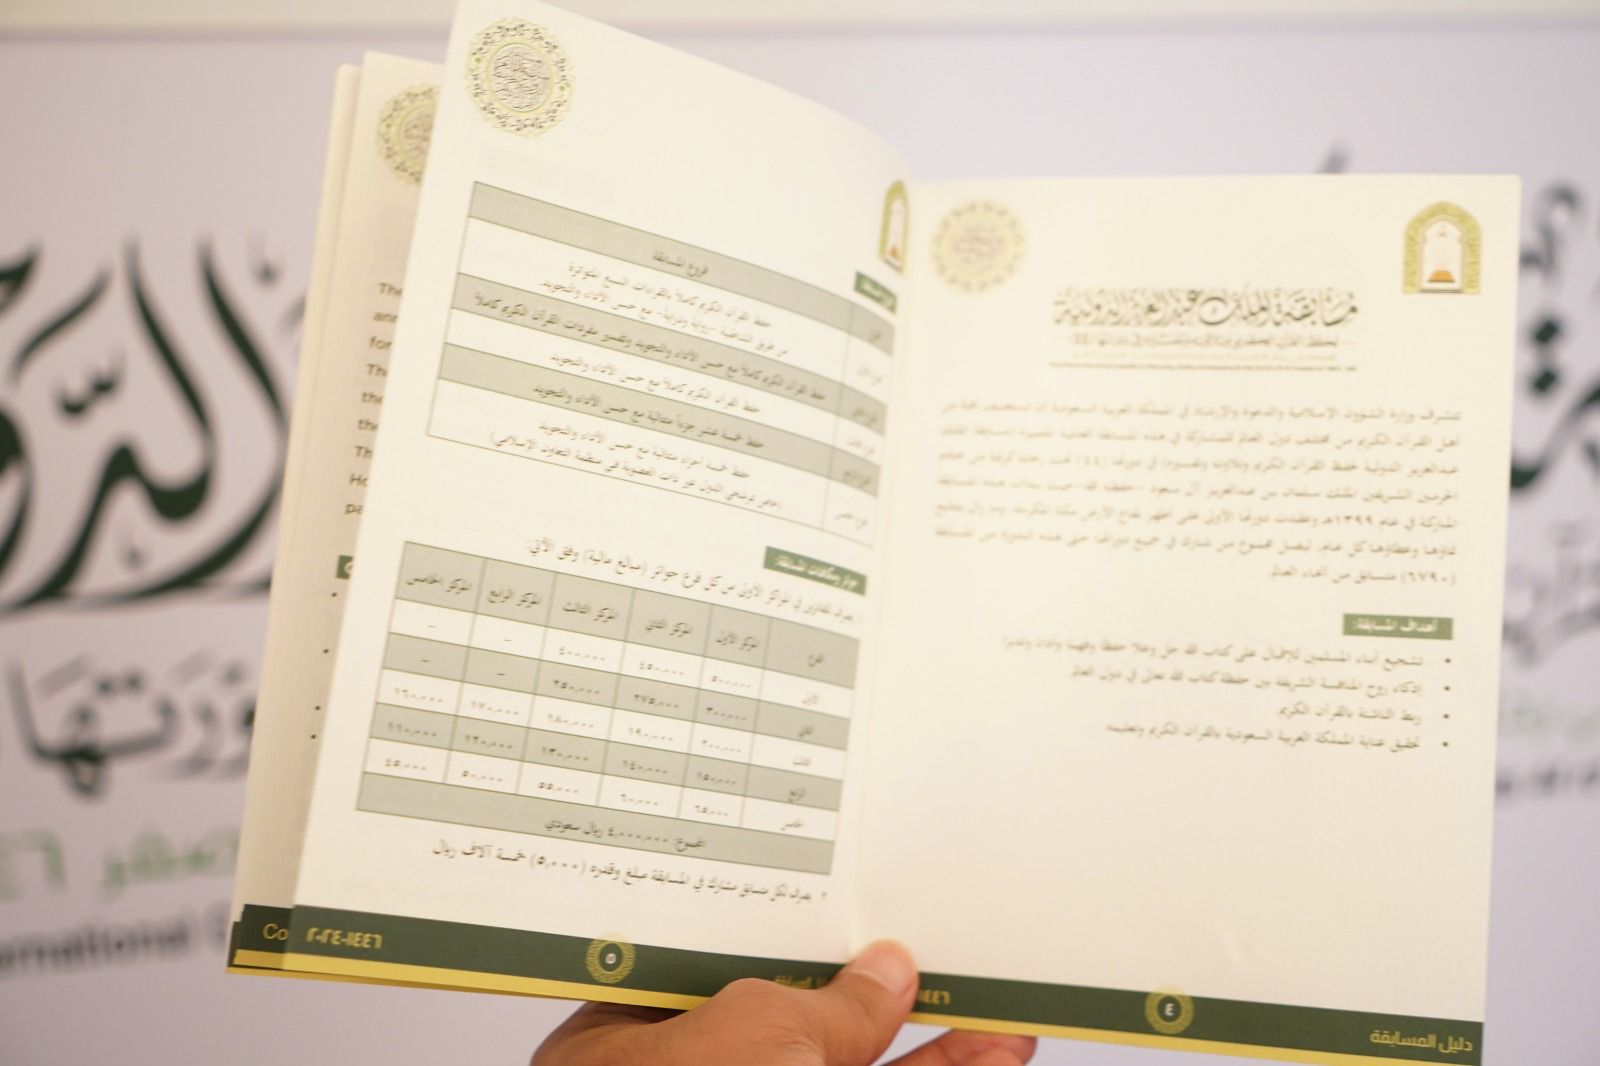 مسابقة الملك عبدالعزيز الدولية
تتشرف وزارة الشؤون الإسلامية والدعوة والإرشاد في المملكة العربية السعودية أن تستضيف نخبة من
أهل القرآن الكريم من مختلف دول العالم للمشاركة في هذه المسابقة العالمية المتميزة (مسابقة الملك
عبدالعزيز الدولية لحفظ القرآن الكريم وتلاوته وتفسيره) في دورتها (٤٤) تحت رعاية كريمة من خادم
الحرمين الشريفين الملك سلمان بن عبدالعزيز آل سعود -حفظه الله- حيث بدأت هذه المسابقة
المباركة في عام ١٣٩٩هـ وعقدت دورتها الأولى على أطهر بقاع الأرض مكة المكرمة، وما زال يتتابع
نماؤها وعطاؤها كل عام، ليصل مجموع من شارك في جميع دوراتها حتى هذه الدورة من المسابقة
(٦٧٩٠) متسابق من أنحاء العالم.
أهداف المسابقة:
تشجيع أبناء المسلمين للإقبال على كتاب الله جل وعلا حفظًا وفهمًا وأداءً وتدبرًا
إذكاء روح المنافسة الشريفة بين حفظة كتاب الله تعالى في دول العالم
ربط الناشئة بالقرآن الكريم
تحقيق عناية المملكة العربية السعودية بالقرآن الكريم وتعليمه
دليل المسابقة
٤
فروع المسابقة
حفظ القرآن الكريم كاملاً بالقراءات السبع المتواترة
من طريق الشاطبية -رواية ودراية- مع حسن الأداء والتجويد.
حفظ القرآن الكريم كاملاً مع حسن الأداء والتجويد وتفسير مفردات القرآن الكريم كاملاً
حفظ القرآن الكريم كاملاً مع حسن الأداء والتجويد
حفظ خمسة عشر جزءاً متتالية مع حسن الأداء والتجويد
حفظ خمسة أجزاء متتالية مع حسن الأداء والتجويد
(خاص بمرشحي الدول غير ذات العضوية في منظمة التعاون الإسلامي)
جوائز ومكافآت المسابقة:
يصرف للفائزين في المراكز الأولى من كل فرع جوائز (مبالغ مالية) وفق الآتي:
الفرع المركز الأول المركز الثاني المركز الثالث المركز الرابع المركز الخامس
الأول ٥٠٠,٠٠٠ ٤٥٠,٠٠٠ ٤٠٠,٠٠٠ – –
الثاني ٣٠٠,٠٠٠ ٢٧٥,٠٠٠ ٢٥٠,٠٠٠ – –
الثالث ٢٠٠,٠٠٠ ١٩٠,٠٠٠ ١٨٠,٠٠٠ ١٧٠,٠٠٠ ١٦٠,٠٠٠
الرابع ١٥٠,٠٠٠ ١٤٠,٠٠٠ ١٣٠,٠٠٠ ١٢٠,٠٠٠ ١١٠,٠٠٠
الخامس ٦٥,٠٠٠ ٦٠,٠٠٠ ٥٥,٠٠٠ ٥٠,٠٠٠ ٤٥,٠٠٠
المجموع: ٤,٠٠٠,٠٠٠ ريال سعودي
٢ يصرف لكل متسابق مشارك في المسابقة مبلغ وقدره (٥,٠٠٠) خمسة آلاف ريال
٥
١٤٤٦-٢٠٢٤